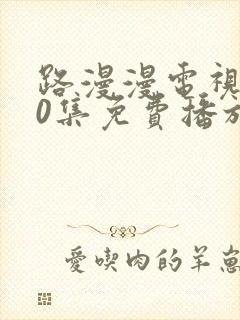 路漫漫電視
0集免費播放
愛喫肉的羊崽